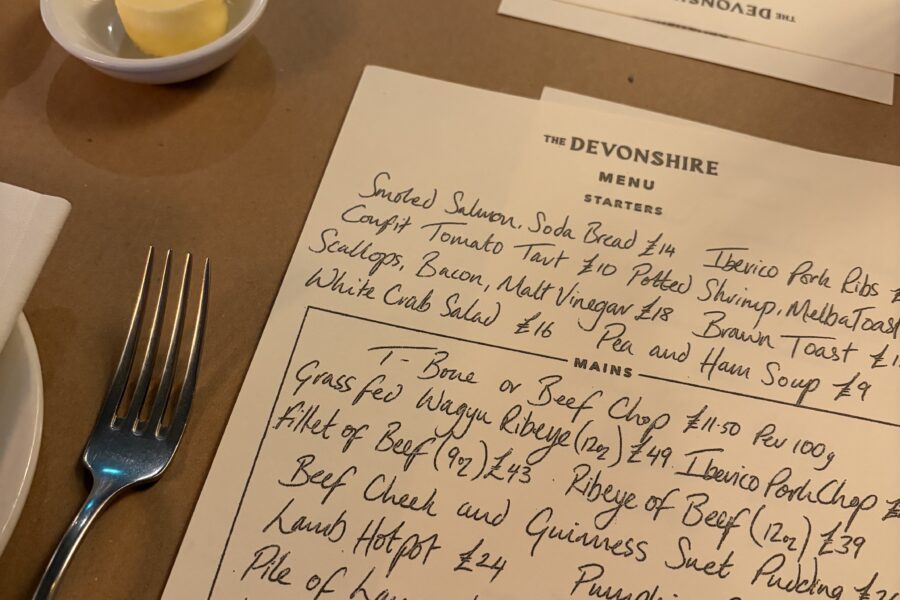 THE DEVONSHIRE
THE DEVONSHIRE
MENU
STARTERS
Smoked Salmon, Soda Bread £14 Iberico Pork Ribs £
Confit Tomato Tart £10 Potted Shrimp, Melba Toast
Scallops, Bacon, Malt Vinegar £18 Brawn Toast £1
White Crab Salad £16 Pea and Ham Soup £9
MAINS
T-Bone or Beef Chop £11.50 Per 100g
Grass fed Wagyu Ribeye (12oz) £49. Iberico Pork Chop £
Fillet of Beef (9oz) £43 . Ribeye of Beef (12oz) £39
Beef Cheek and Guinness Suet Pudding £2
Lamb Hotpot £24
Pile of